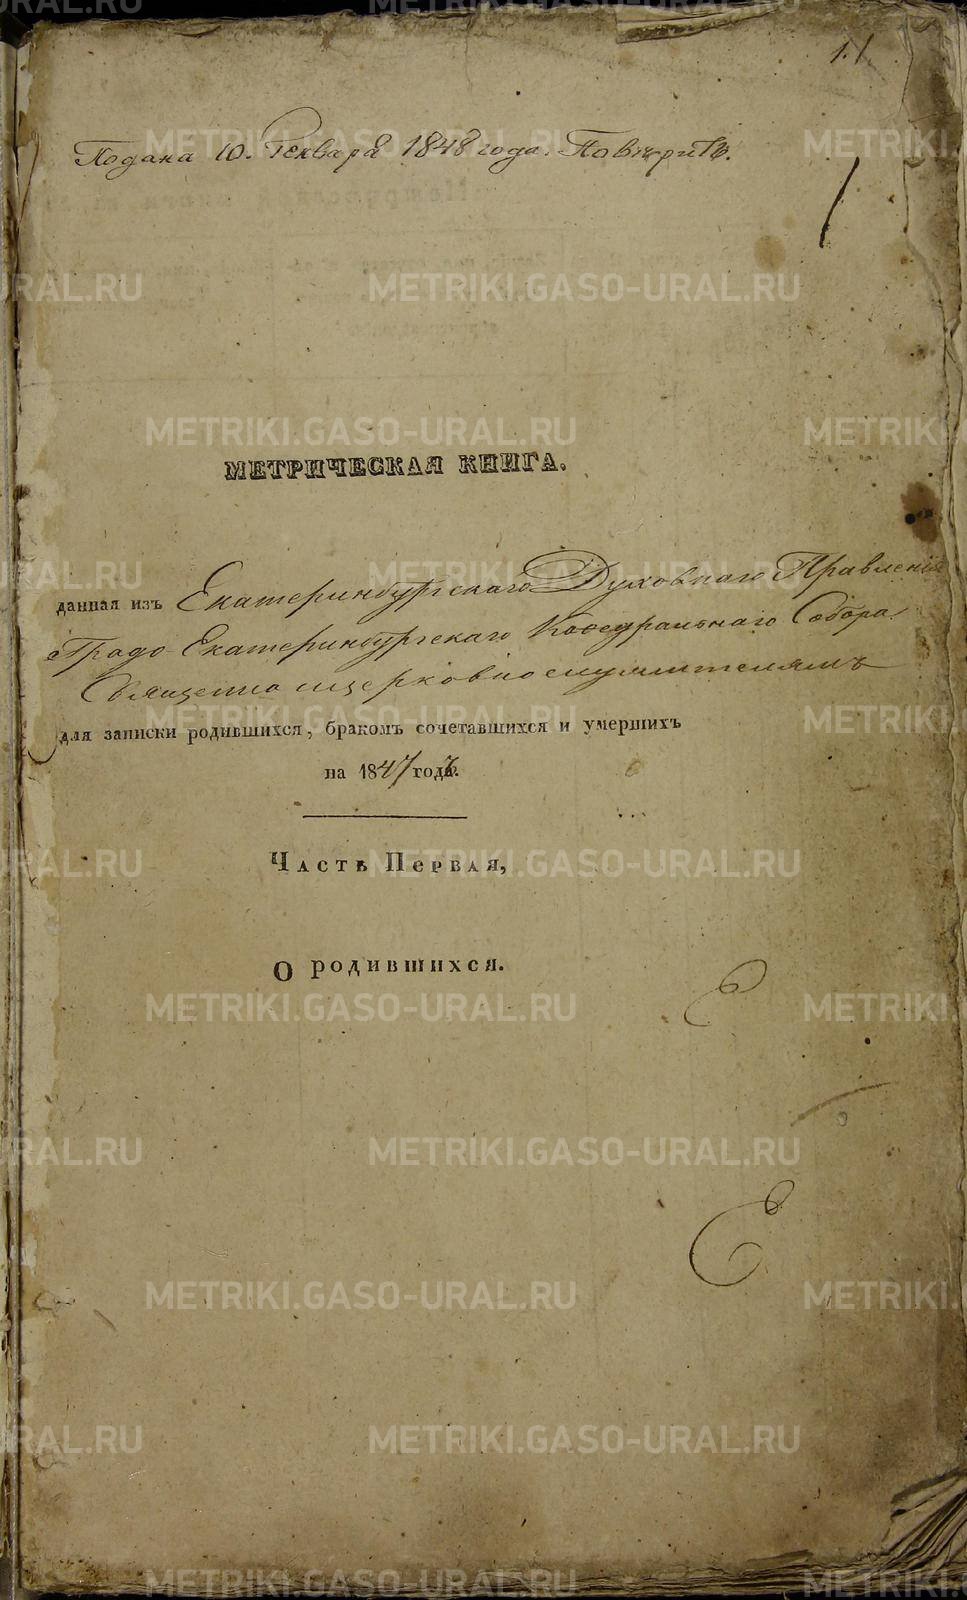 1.1.
Подана 10. Генваря 1848 года. Повѣрить.
МЕТРИЧЕСКАЯ КНИГА.
данная изъ Екатеринбургскаго Духовнаго Правленія
Градо-Екатеринбургскаго Каѳедральнаго Собора
Священно и церковнослужителямъ
для записки родившихся, бракомъ сочетавшихся и умершихъ
на 1847 годъ.
Часть Первая,
О родившихся.
METRIKI.GASO-URAL.RU